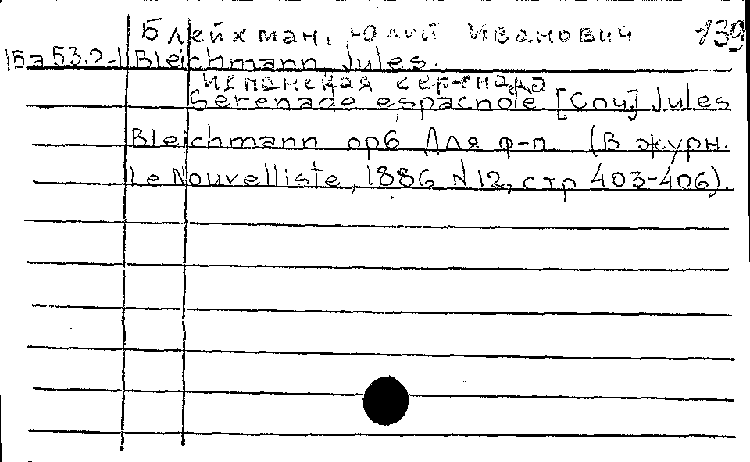 Блейхман, Юлий Иванович 139
Ба 53.2-1 Bleichmann Jules.
Испанская серенада
Serenade espacnole [Соч.] Jules
Bleichmann op6 Для ф-п. (В журн.
Le Nouvelliste, 1886 N12, стр 403-406).